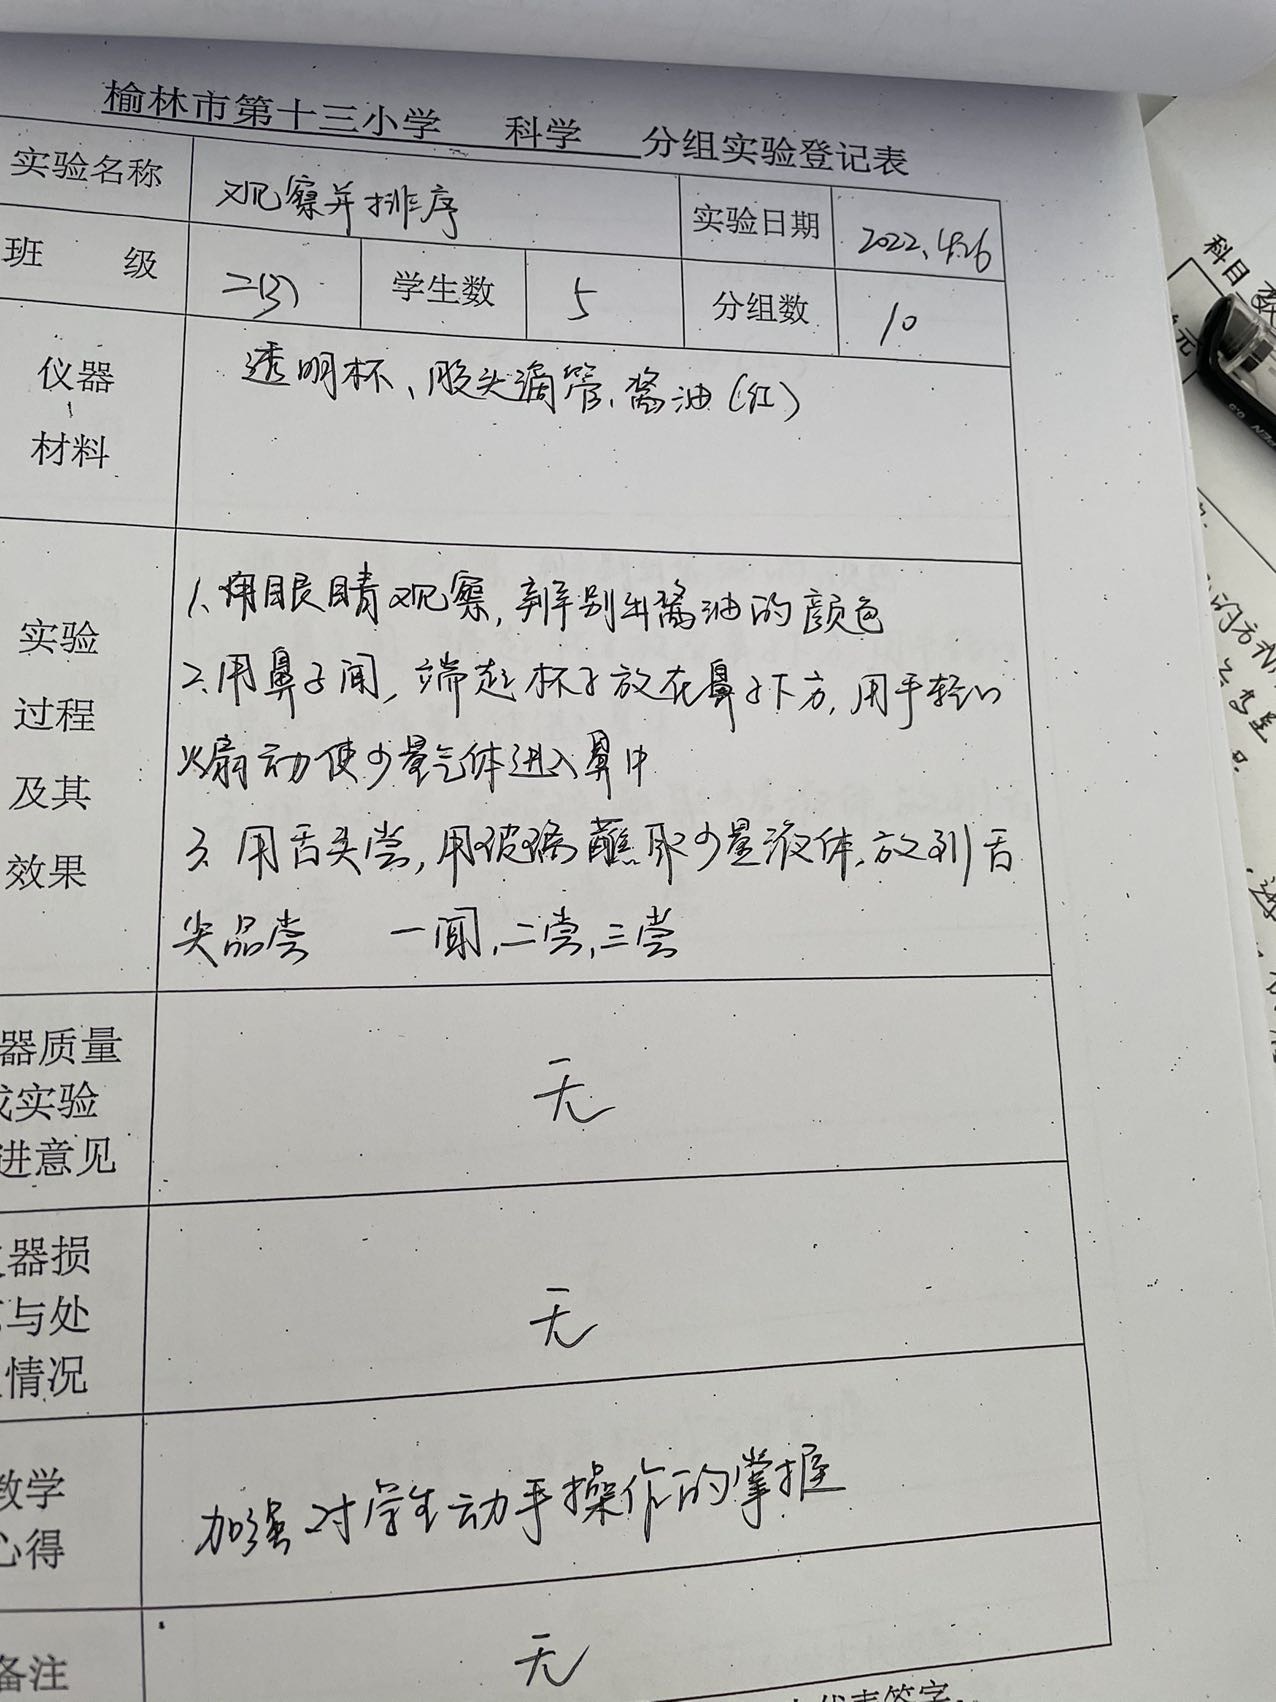 榆林市第十三小学 科学 分组实验登记表
实验名称 观察并排序 实验日期 2022.4.26
班 级 二(3) 学生数 5 分组数 10
仪器 材料 透明杯、胶头滴管、酱油(红)
实验 过程 及其 效果
1、用眼睛观察,辨别出酱油的颜色
2、用鼻子闻,端起杯子放在鼻子下方,用手轻
扇动使少量气体进入鼻中
3、用舌头尝,用玻璃蘸取少量液体,放到舌
尖品尝 一闻,二尝,三尝
器质量
实验
进意见
无
器损
与处
情况
无
教学
心得
加强对学生动手操作的掌握
备注 无
代表签字
科目
元